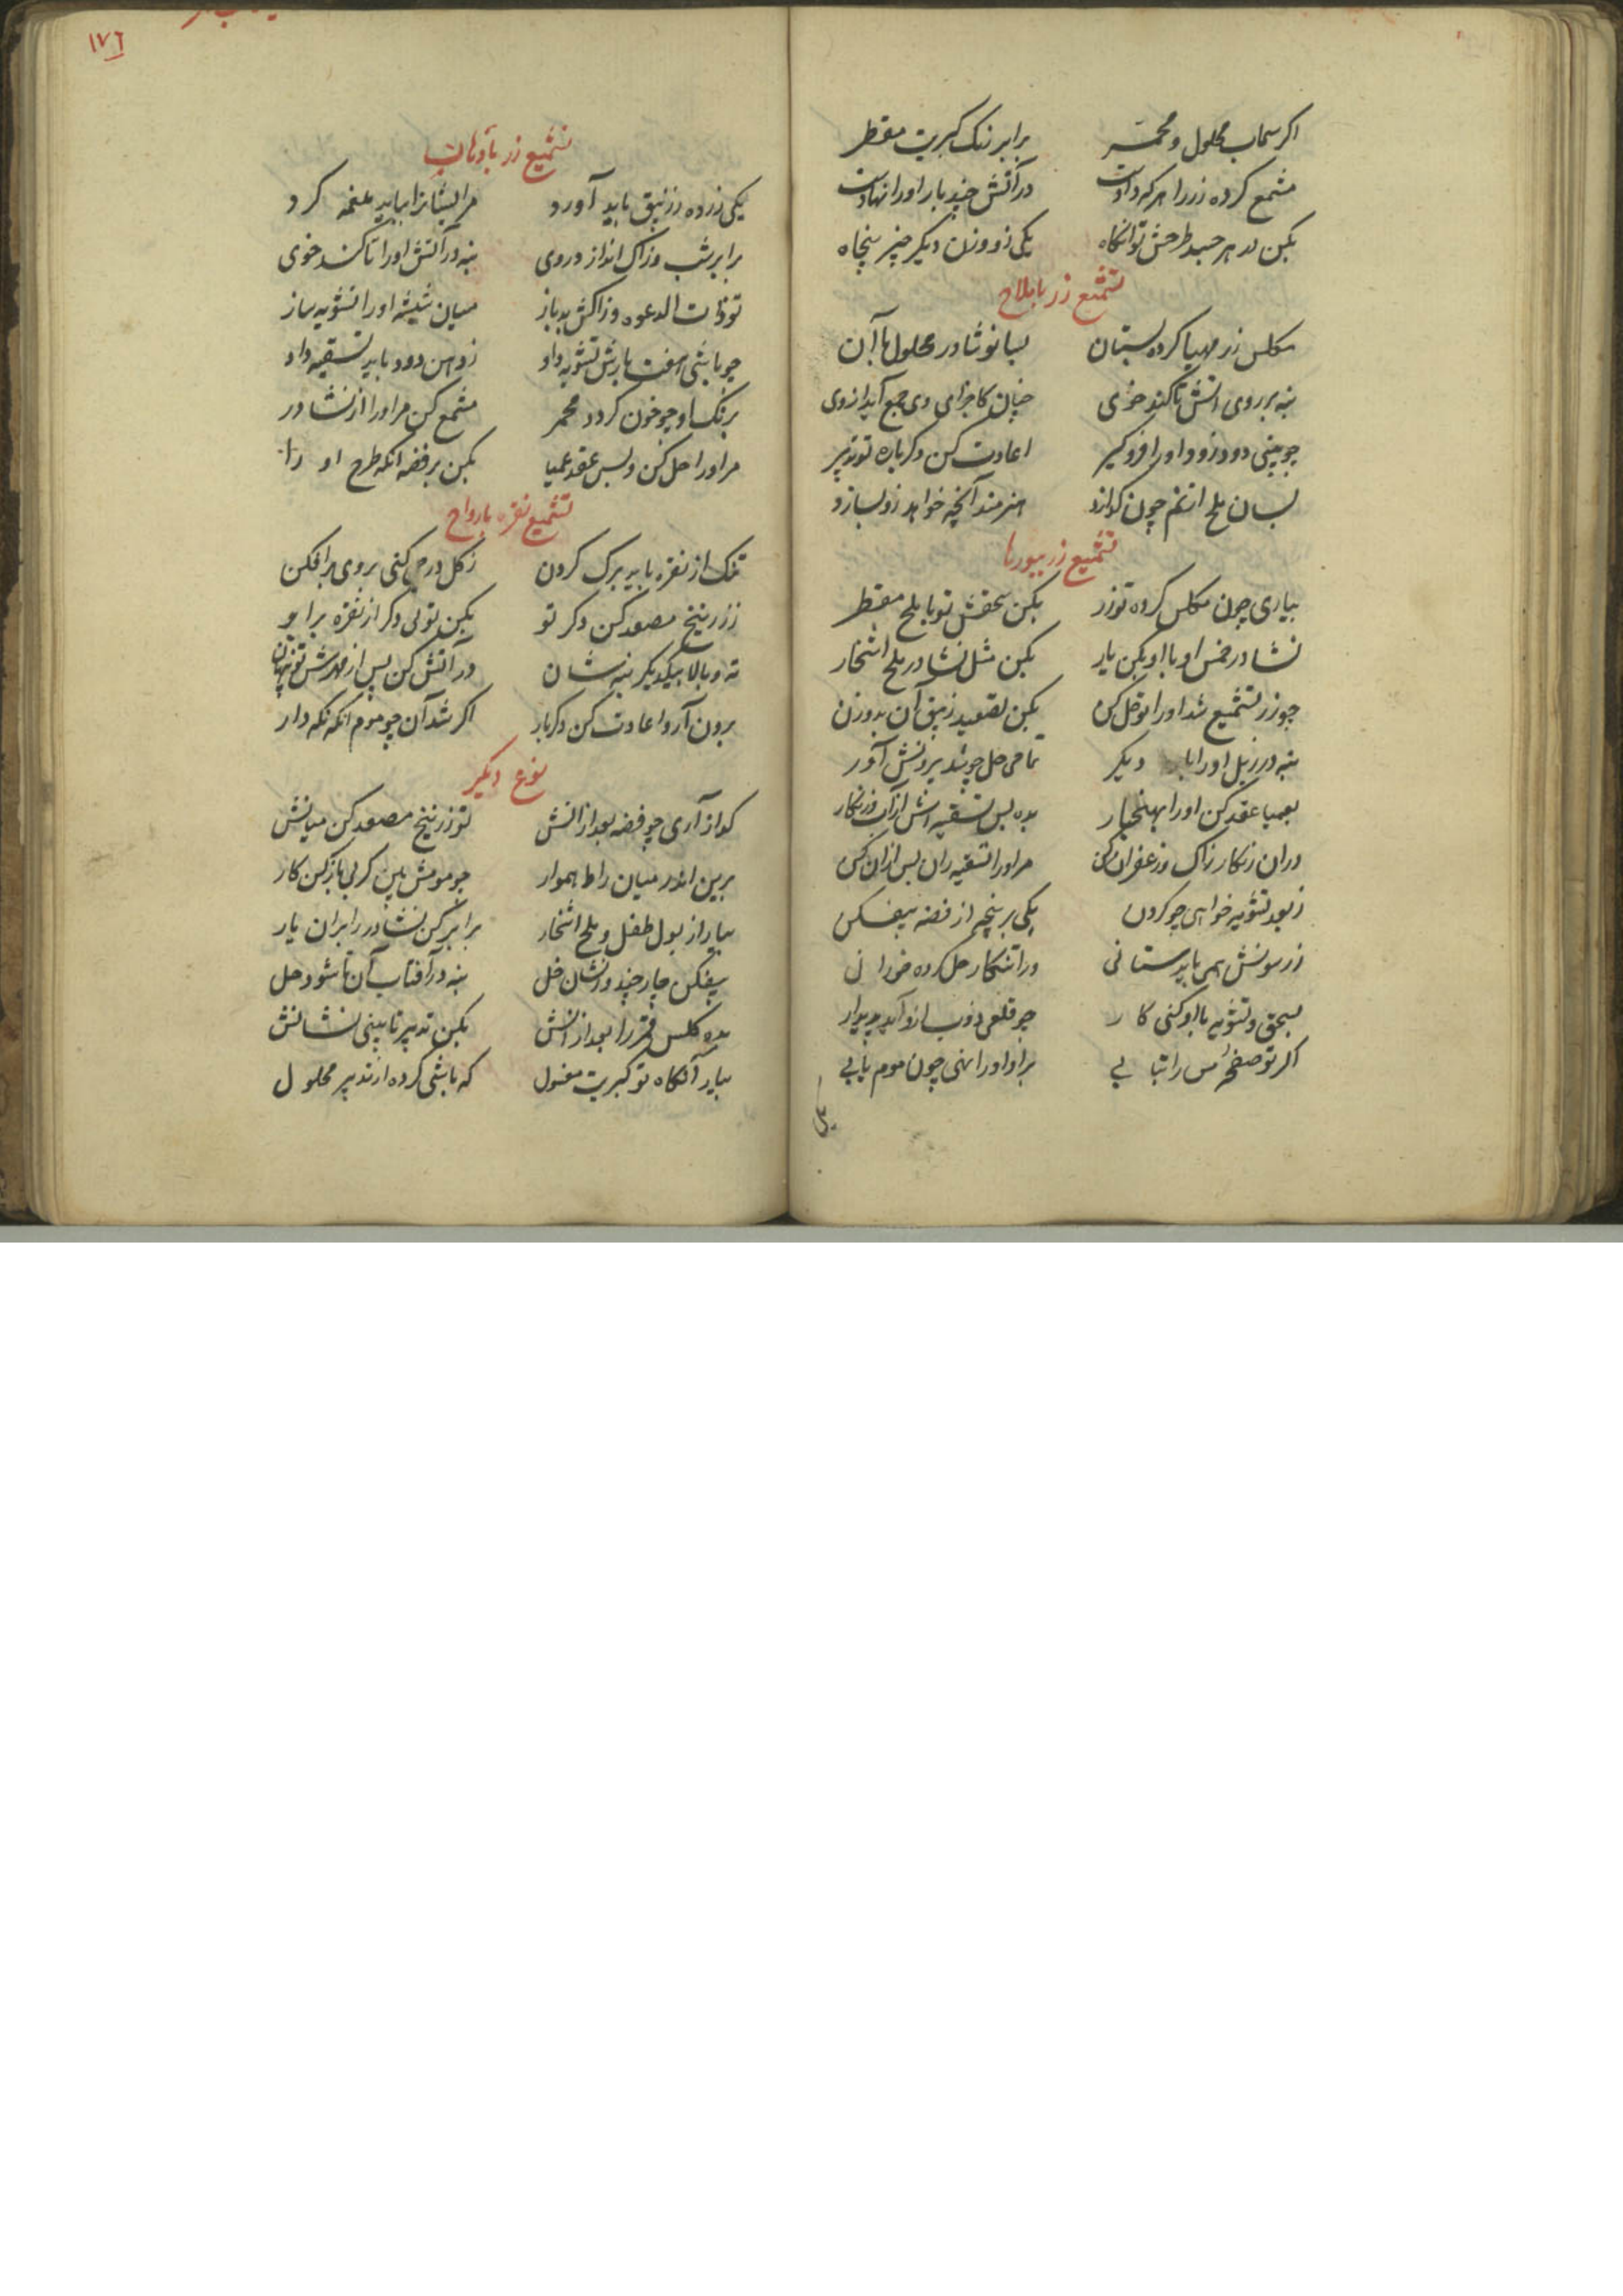 اکر سیماب محلول و محمر برابر زنک کبریت مقطر
مشمع کرده زر را هر که دادست در آتش چند بار او را نهادست
بکن بر هر جسد طرحش توانکاه یکی زو وزن دیکر چیز پنجاه
تشمیع زر باملاح
مکلس زر مهیا کرده بستان بسا نوشادر محلول با آن
بنه بر روی آتش تا کند خوی چنان کاجزای وی جمع آید از وی
چو بینی دود زو او را فروکیر اعادت کن دکرباره تو تدبیر
بسان ملح از نم چون کدازد هنرمند آنچه خواهد زو بسازد
تشمیع زر ببورها
بیاری چون مکلس کرده تو زر بکن سحقش تو با ملح مقطر
نشادر خمس او با او بکن یار بکن مثل نشادر ملح اشخار
چو زر تشمیع شد او را تو حل کن بکن تصعید زیبق آن بدو زن
بنه در زبل او را دیکر تمامی حل چو شد بیرونش آور
بعمیا عقد کن او را بهنجار بده پس تسقیه اش از آب زنکار
در آن زنکار زاک و زعفران کن مر او را تسقیه زان پس از آن کن
ز بعد تشویه خواهی چو کردن یکی بر پنجه از فضه بیفکن
زر سونش همی باید ستانی در اشکار حل کرده
بسحق و تشویه با او کنی کار چو قلعی ذوب ازو آید پدیدار
اکر تو صفحه مس را بتابی برو او را نهی چون موم یابی
١٧٦
تشمیع زر بادهان
یکی زرده ز زیبق باید آورد مر ایشانرا بباید عنمه کرد
برابر شب و زاک انداز در وی بنه در آتش او را تا کند خوی
تو ذات الدعوه و زاکش بده باز میان شیشه او را تشویه ساز
چو باشی هفت بارش تشویه داد ز دهن دود باید تسقیه داد
برنک او چو خون کردد محمر مشمع کن مر او را از نشادر
مر او را حل کن و پس عقد عمیا بکن بر فضه انکه طرح او را
تشمیع نقره بارواح
تنک از نقره باید برک کردن ز کل درجی کنی بروی برافکن
ز زرنیخ مصعد کن دکر تو بکن تولی دکر از نقره برو
ته و بالا بیکدیکر بنه شان در آتش کن پس از مهرش تو پنهان
برون آر و اعادت کن دکربار اکر شد آن چو موم انکه نکه دار
نوع دیکر
کداز آری چو فضه بعد از آنش تو زرنیخ مصعد کن میانش
برین اندر میان راط هموار چو مومش بین کر نی باز کن کار
بیار از بول طفل و ملح اشخار برابر کن نشادر را بر آن یار
بیفکن چار چند وزنشان خل بنه در آفتاب آن تا شود حل
بده کلس قمر را بعد از آنش بکن تدبیر تا بینی نشانش
بیار آنکاه تو کبریت مغسول که باشی کرده از تدبیر محلول